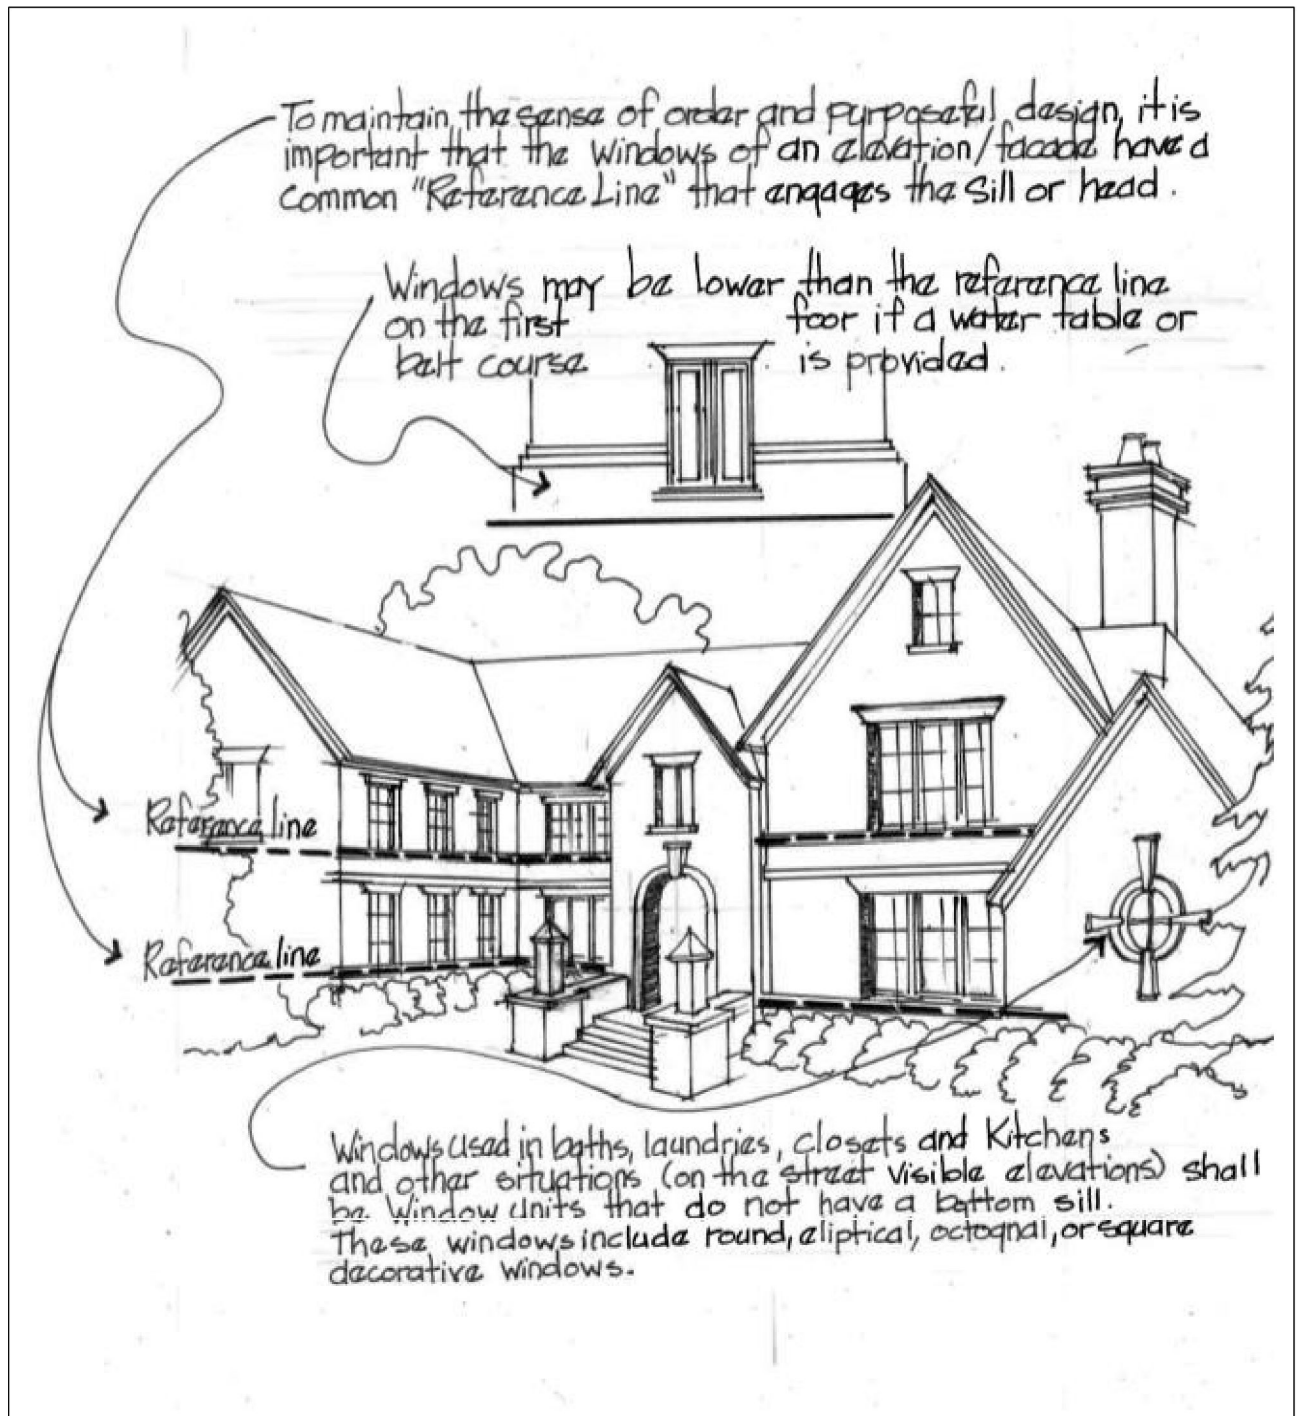 To maintain the sense of order and purposeful design, it is
important that the windows of an elevation/facade have a
common "Reference Line" that engages the sill or head.
Windows may be lower than the reference line
on the first foor if a water table or
belt course is provided.
Reference line
Reference line
Windows used in baths, laundries, closets and Kitchens
and other situations (on the street visible elevations) shall
be Window Units that do not have a bottom sill.
These windows include round, eliptical, octognal, or square
decorative windows.